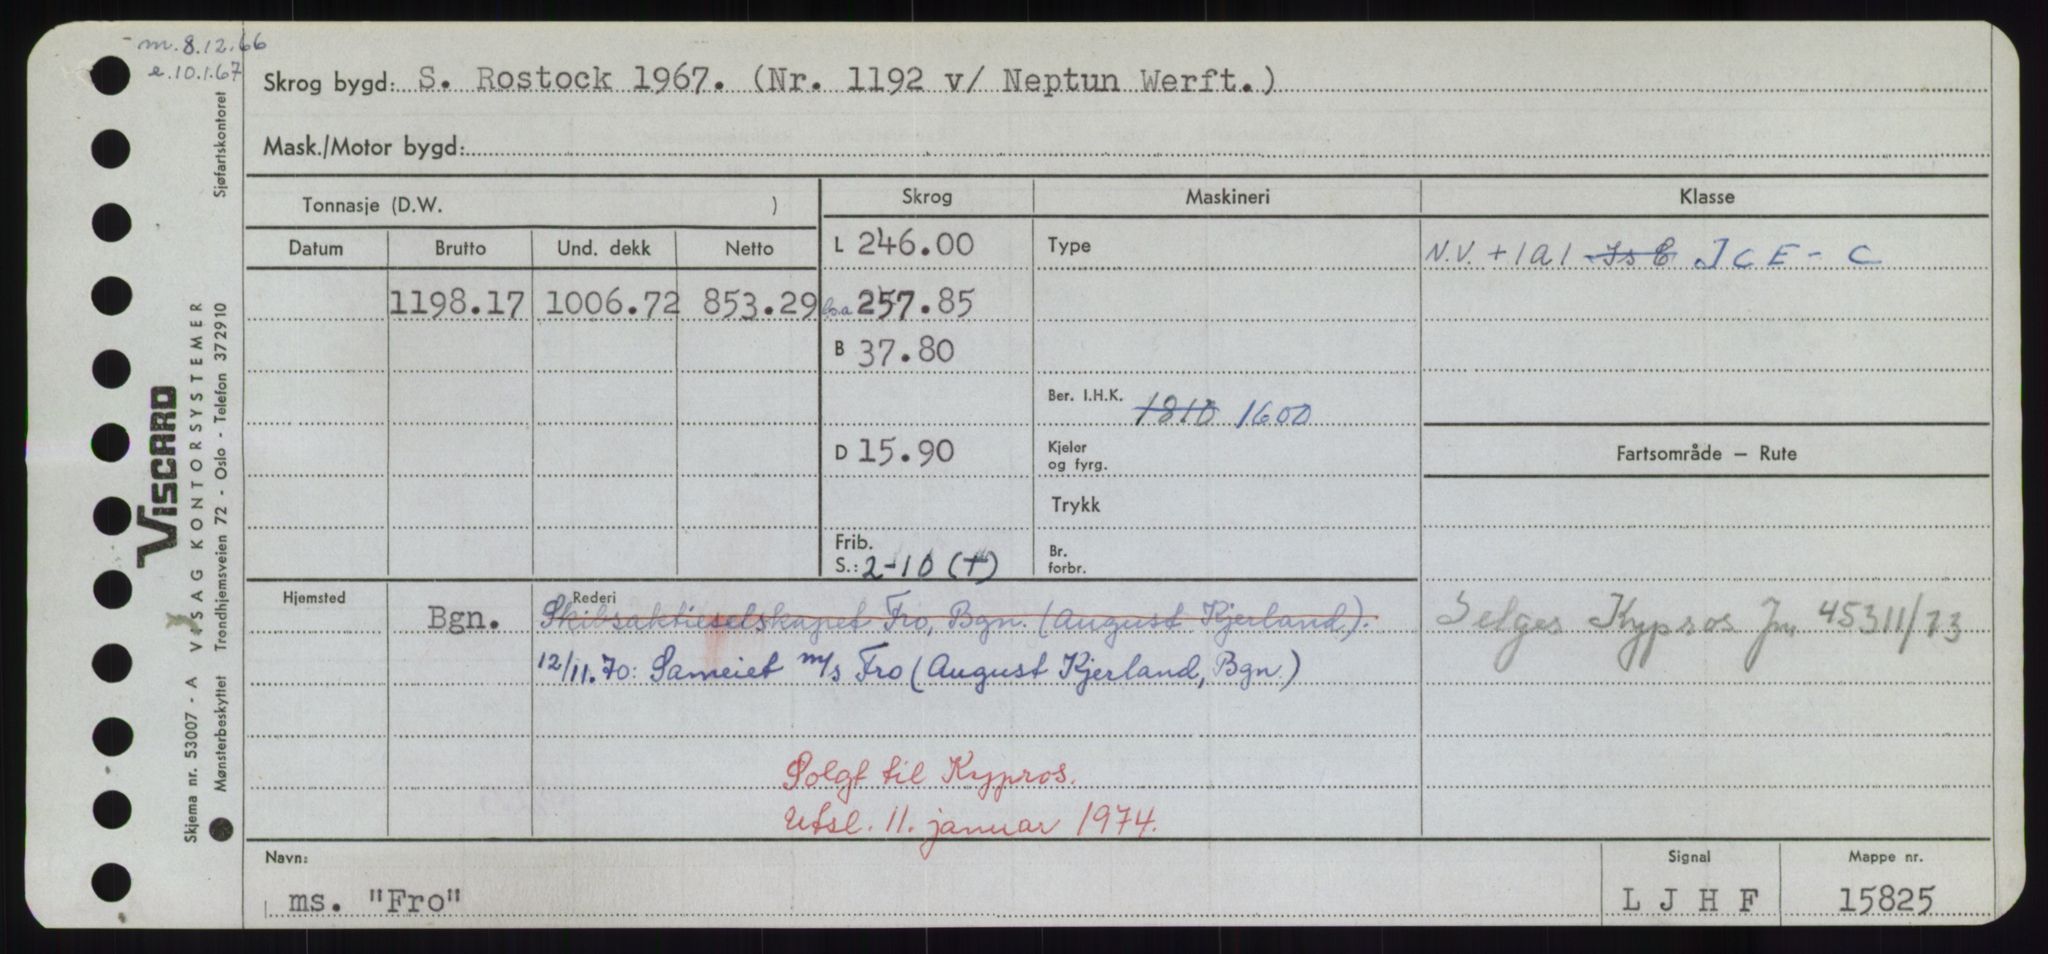 m. 8.12.66
e. 10.1.67
Skrog bygd: S. Rostock 1967. (Nr. 1192 v/ Neptun Werft.)
Mask./Motor bygd:
Tonnasje (D.W. )
Skrog Maskineri Klasse
Datum Brutto Und. dekk Netto
L 246.00 Type N.V. +1A1 Is C ICE - C
1198.17 1006.72 853.29 lo.a 257.85
B 37.80
Ber. I.H.K. 1810 1600
D 15.90 Kjeler og fyrg. Fartsområde – Rute
Trykk
Frib. S.: 2-10 (+) Br. forbr.
Hjemsted Rederi
Bgn. Skibsaktieselskapet Fro, Bgn. (August Kjerland). Selges Kypros Jn 45311/73
12/11.70: Sameiet m/s Fro (August Kjerland, Bgn.)
Solgt til Kypros.
Utsl. 11. januar 1974.
Navn: Signal Mappe nr.
ms. "Fro" L J H F 15825
VISCARD
VISAG KONTORSYSTEMER
Skjema nr. 53007 - A
Mønsterbeskyttet Trondhjemsveien 72 - Oslo - Telefon 372910 Sjøfartskontoret